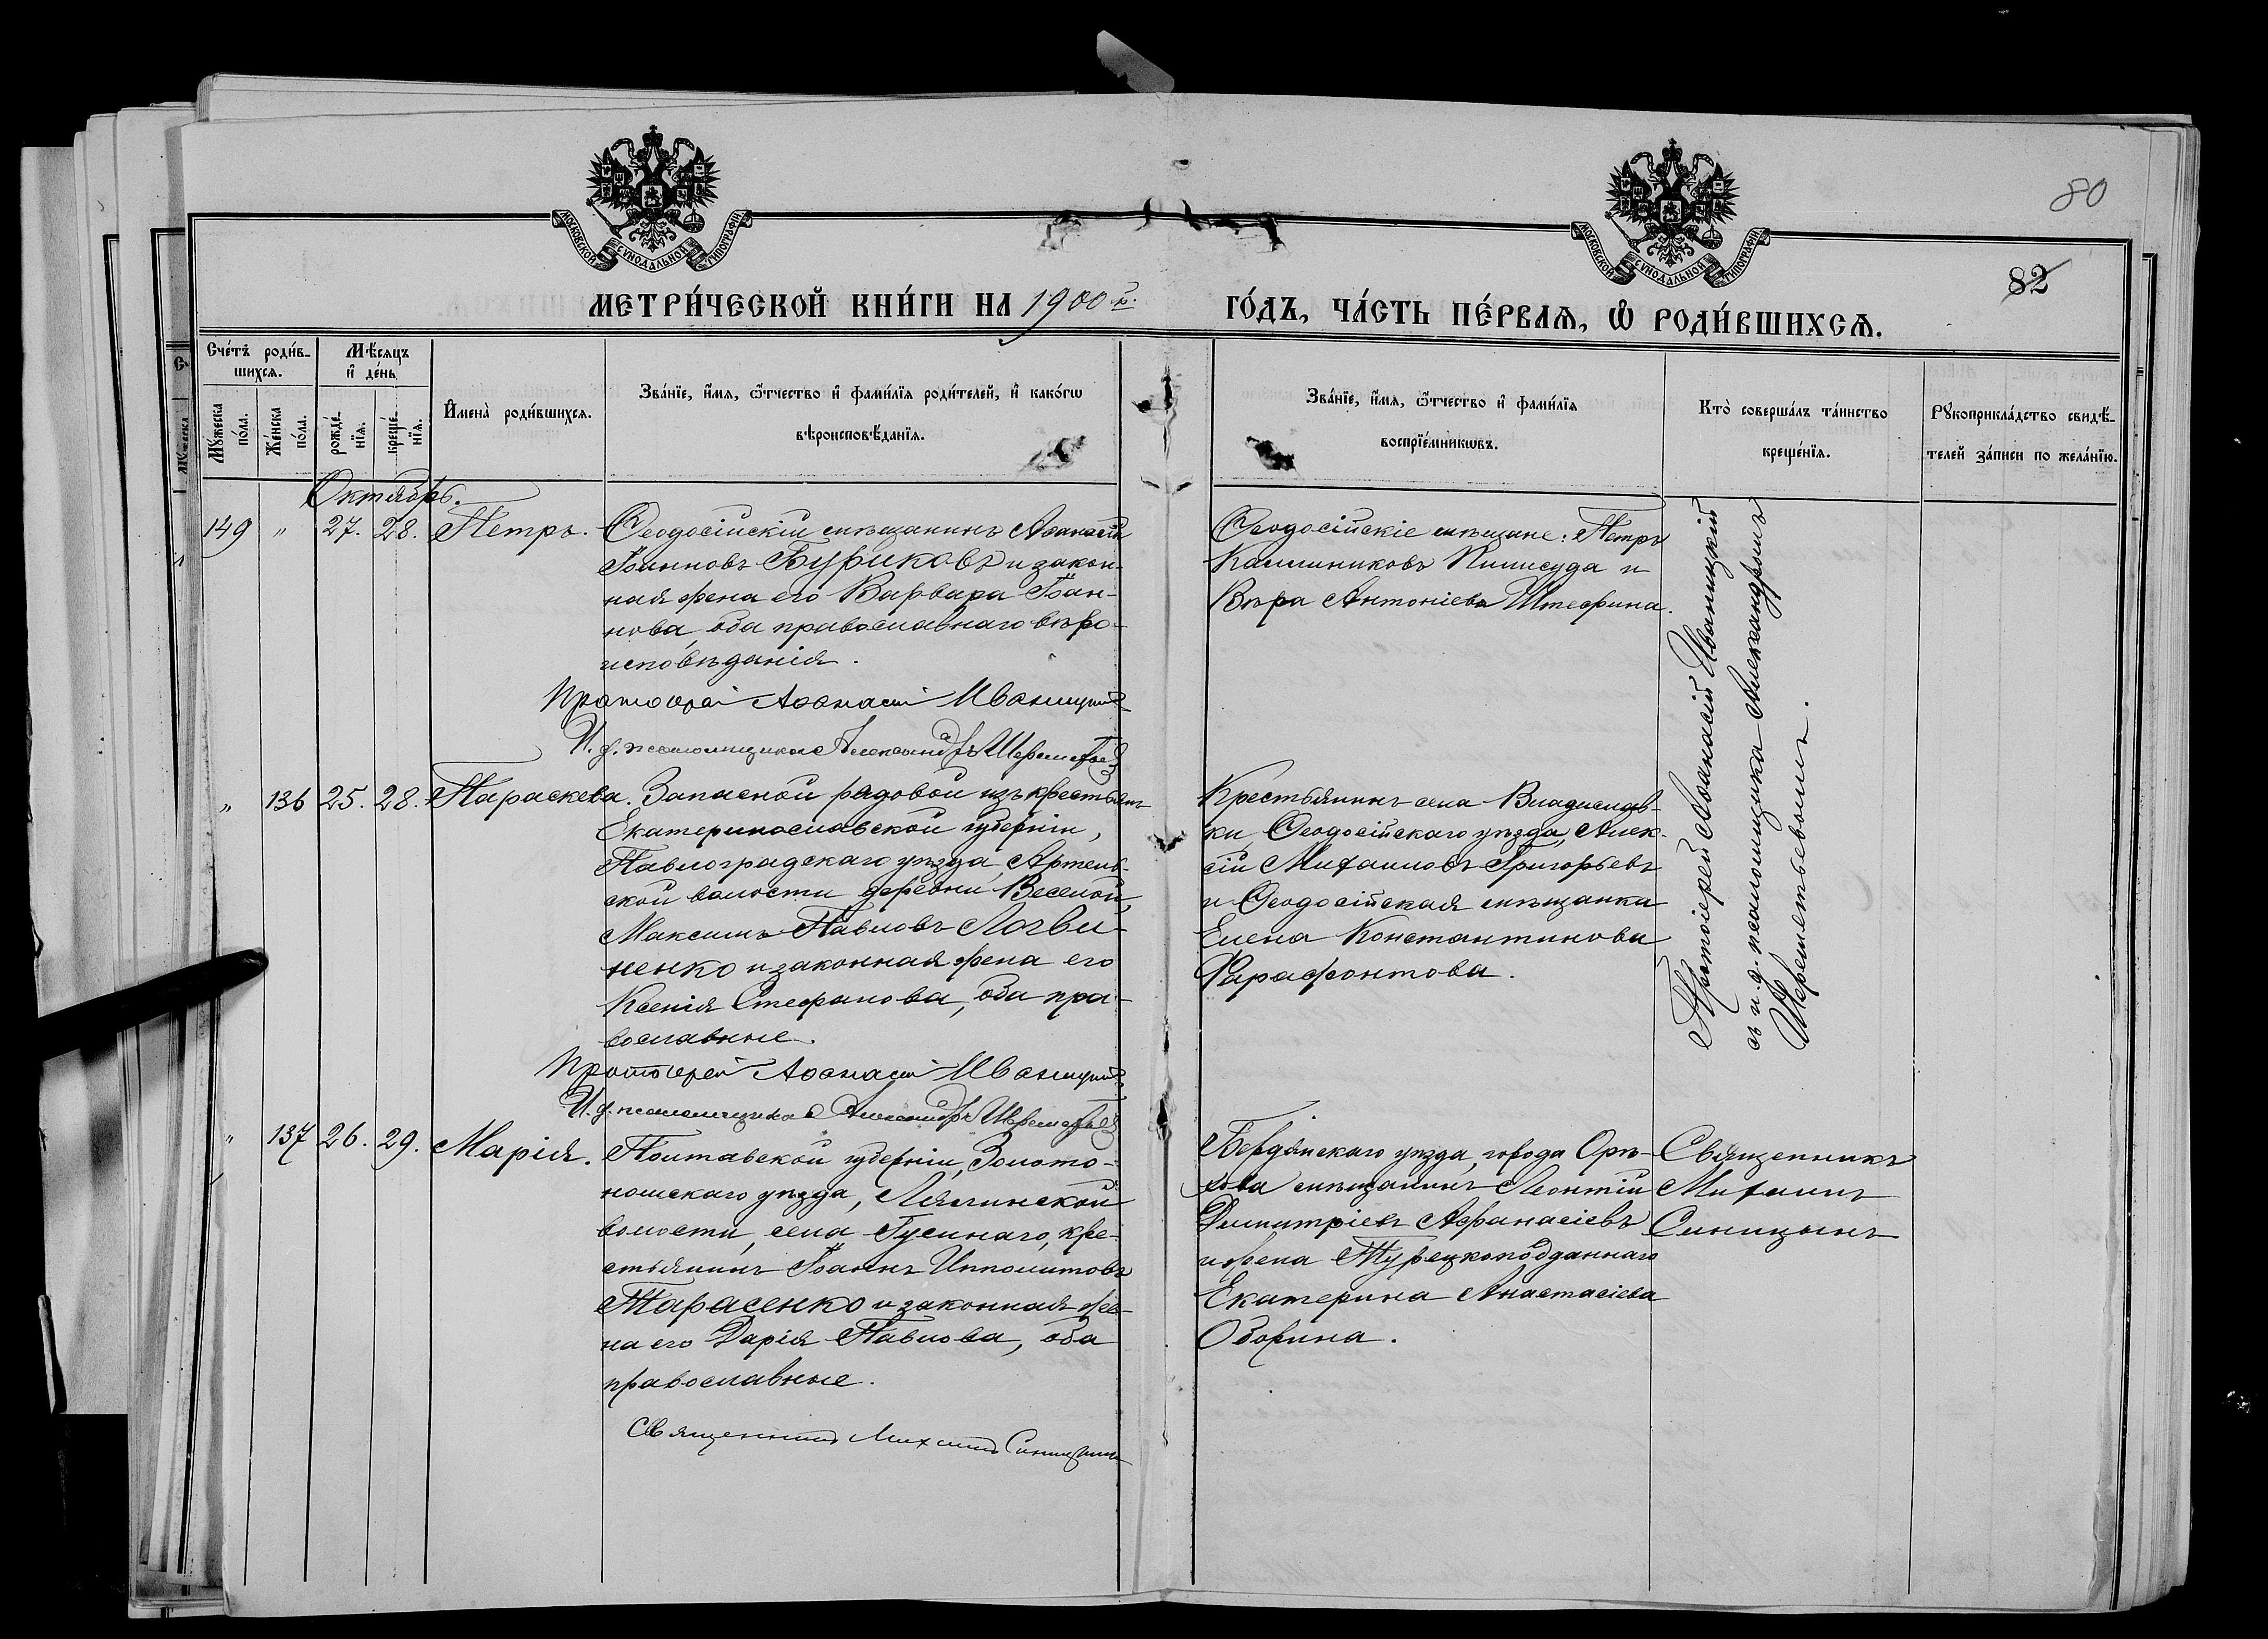 80
82
МОСКОВСКОЙ СѴНОДАЛЬНОЙ ТИПОГРАФІИ
МОСКОВСКОЙ СѴНОДАЛЬНОЙ ТИПОГРАФІИ
МЕТРИ́ЧЕСКОЙ КНИ́ГИ НА 1900й. ГО́ДЪ, ЧА́СТЬ ПЕ́РВАѦ, Ѡ҆ РОДИ́ВШИХСѦ.
Сче́тъ роди́в-
шихсѧ.
Мѣ́сяцъ
и҆ де́нь
Мꙋ́жеска
по́ла.
Же́нска
по́ла.
рожде́-
нїѧ.
креще́-
нїѧ.
И҆мена̀ роди́вшихсѧ.
Зва́нїе, и҆́мѧ, ѻ҆́тчество и҆ фами́лїѧ роди́телей, и҆ како́гѡ
вѣроисповѣ́данїѧ.
Зва́нїе, и҆́мѧ, ѻ҆́тчество и҆ фами́лїѧ
воспрїе́мникѡвъ.
Кто̀ соверша́лъ та́инство
креще́нїѧ.
Рꙋкоприкла́дство свидѣ́-
телей за́писи по жела́нїю.
Октябрь.
149 " 27. 28. Петръ.
Ѳеодосійскій мѣщанинъ Аѳанасій
Іоанновъ Буриковъ и закон-
ная жена его Варвара Іоан-
нова, оба православнаго вѣро-
исповѣданія.
Протоіерей Аѳанасій Иваницкій
И. д. псаломщика Александръ Шереметьев
Ѳеодосійскіе мѣщане: Петръ
Калинниковъ и
Вѣра Антоніева
Протоіерей Аѳанасій Иваницкій
съ и. д. псаломщика Александромъ
Шереметьевымъ.
" 136 25. 28. Параскева.
Запасной рядовой изъ крестьянъ
Екатеринославской губерніи,
Павлоградскаго уѣзда, Артель-
ской волости деревни Веселой,
Максимъ Павловъ Логви-
ненко и законная жена его
Ксенія Стефанова, оба пра-
вославные.
Протоіерей Аѳанасій Иваницкій
И. д. псаломщика Александръ Шереметьев
Крестьянинъ села Владислав-
ки, Ѳеодосійскаго уѣзда, Алек-
сій Михаиловъ Григорьевъ
и Ѳеодосійская мѣщанка
Елена Константинова
Фарафонтова.
" 137 26. 29. Марія.
Полтавской губерніи, Золото-
ношскаго уѣзда, Лялинской
волости, села Гусинаго, кре-
стьянинъ Іоаннъ Ипполитовъ
Тарасенко и законная же-
на его Дарія Павлова, оба
православные.
Священникъ Михаилъ Синицынъ
Бердянскаго уѣзда, города Орѣ-
хова мѣщанинъ Леонтій
Димитріевъ Афанасіевъ
и жена Турецкоподданнаго
Екатерина Анастасіева
Озорина.
Священникъ
Михаилъ
Синицынъ